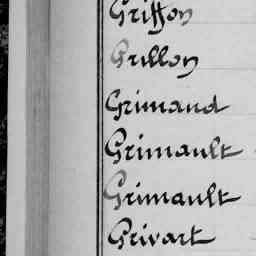 Griffon
Grillon
Grimaud
Grimault
Grimault
Grivart